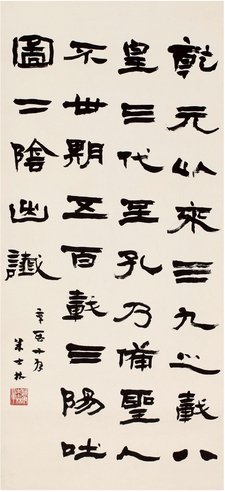 乾元以來三九之載八
皇三代至孔乃備聖人
不世期五百載三陽吐
圖二陰出讖
辛酉
朱士林